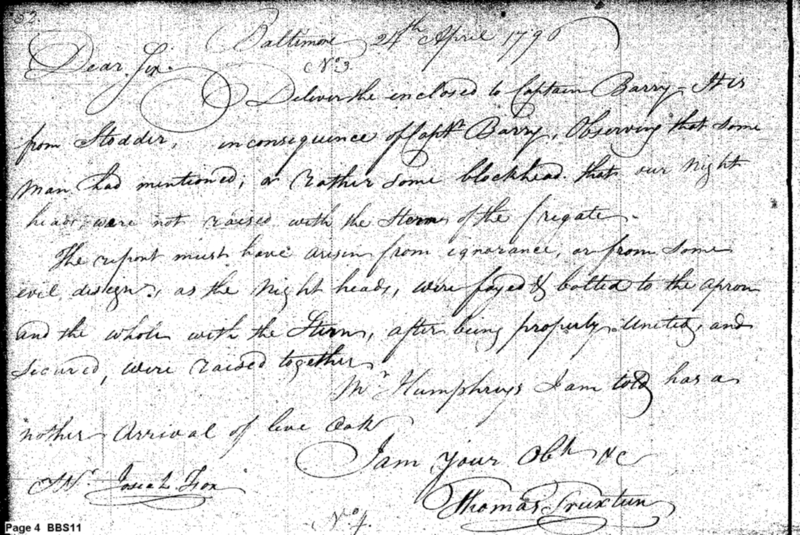 52.
Baltimore 24th April 1796
Dear Sir.
No. 3
Deliver the enclosed to Captain Barry. It is
from Stodder, in consequence of Captn. Barry, Observing that some
man had mentioned; or rather some blockhead that our Night
heads were not raised with the Stem of the frigate.
The report must have arisen from ignorance, or from some
evil design, as the Night heads, were fayed & bolted to the apron
and the whole with the Stem, after being properly United, and
secured, were raised together
Mr. Humphreys I am told has a
nother Arrival of live Oak
I am your Obt. &c
Mr. Josiah Fox
Thomas Truxtun
No. 4.
Page 4 BBS11